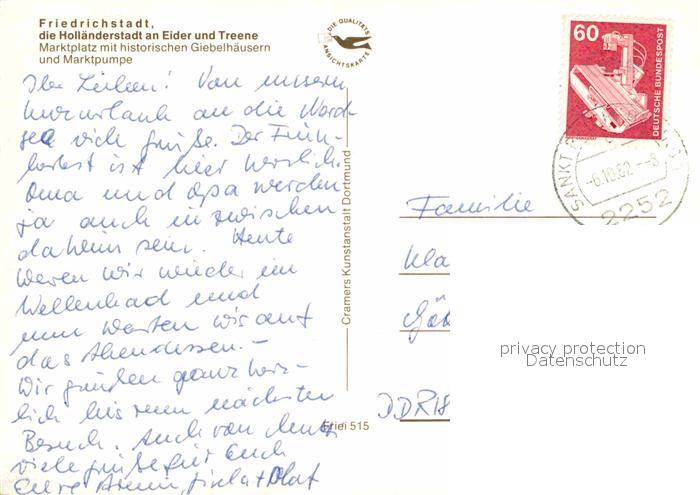 Friedrichstadt,
die Holländerstadt an Eider und Treene
Marktplatz mit historischen Giebelhäusern
und Marktpumpe
DIE QUALITÄTS
ANSICHTSKARTE
60
DEUTSCHE BUNDESPOST
SANKT
-6.10.82--8
2252
Ihr Lieben! Von unserm
Kurzurlaub an die Nord-
see viele Grüße. Der Früh-
herbst ist hier herrlich.
Oma und Opa werden
ja auch inzwischen
daheim sein. Heute
waren wir wieder im
Wellenbad und
nun warten wir auf
das Abendessen. -
Wir grüßen ganz herz-
lich bis zum nächsten
Besuch. Auch von
viele Grüße für Euch
Eure + Olaf
Cramers Kunstanstalt Dortmund
Friei 515
Familie
Kla
DDR 18
privacy protection
Datenschutz